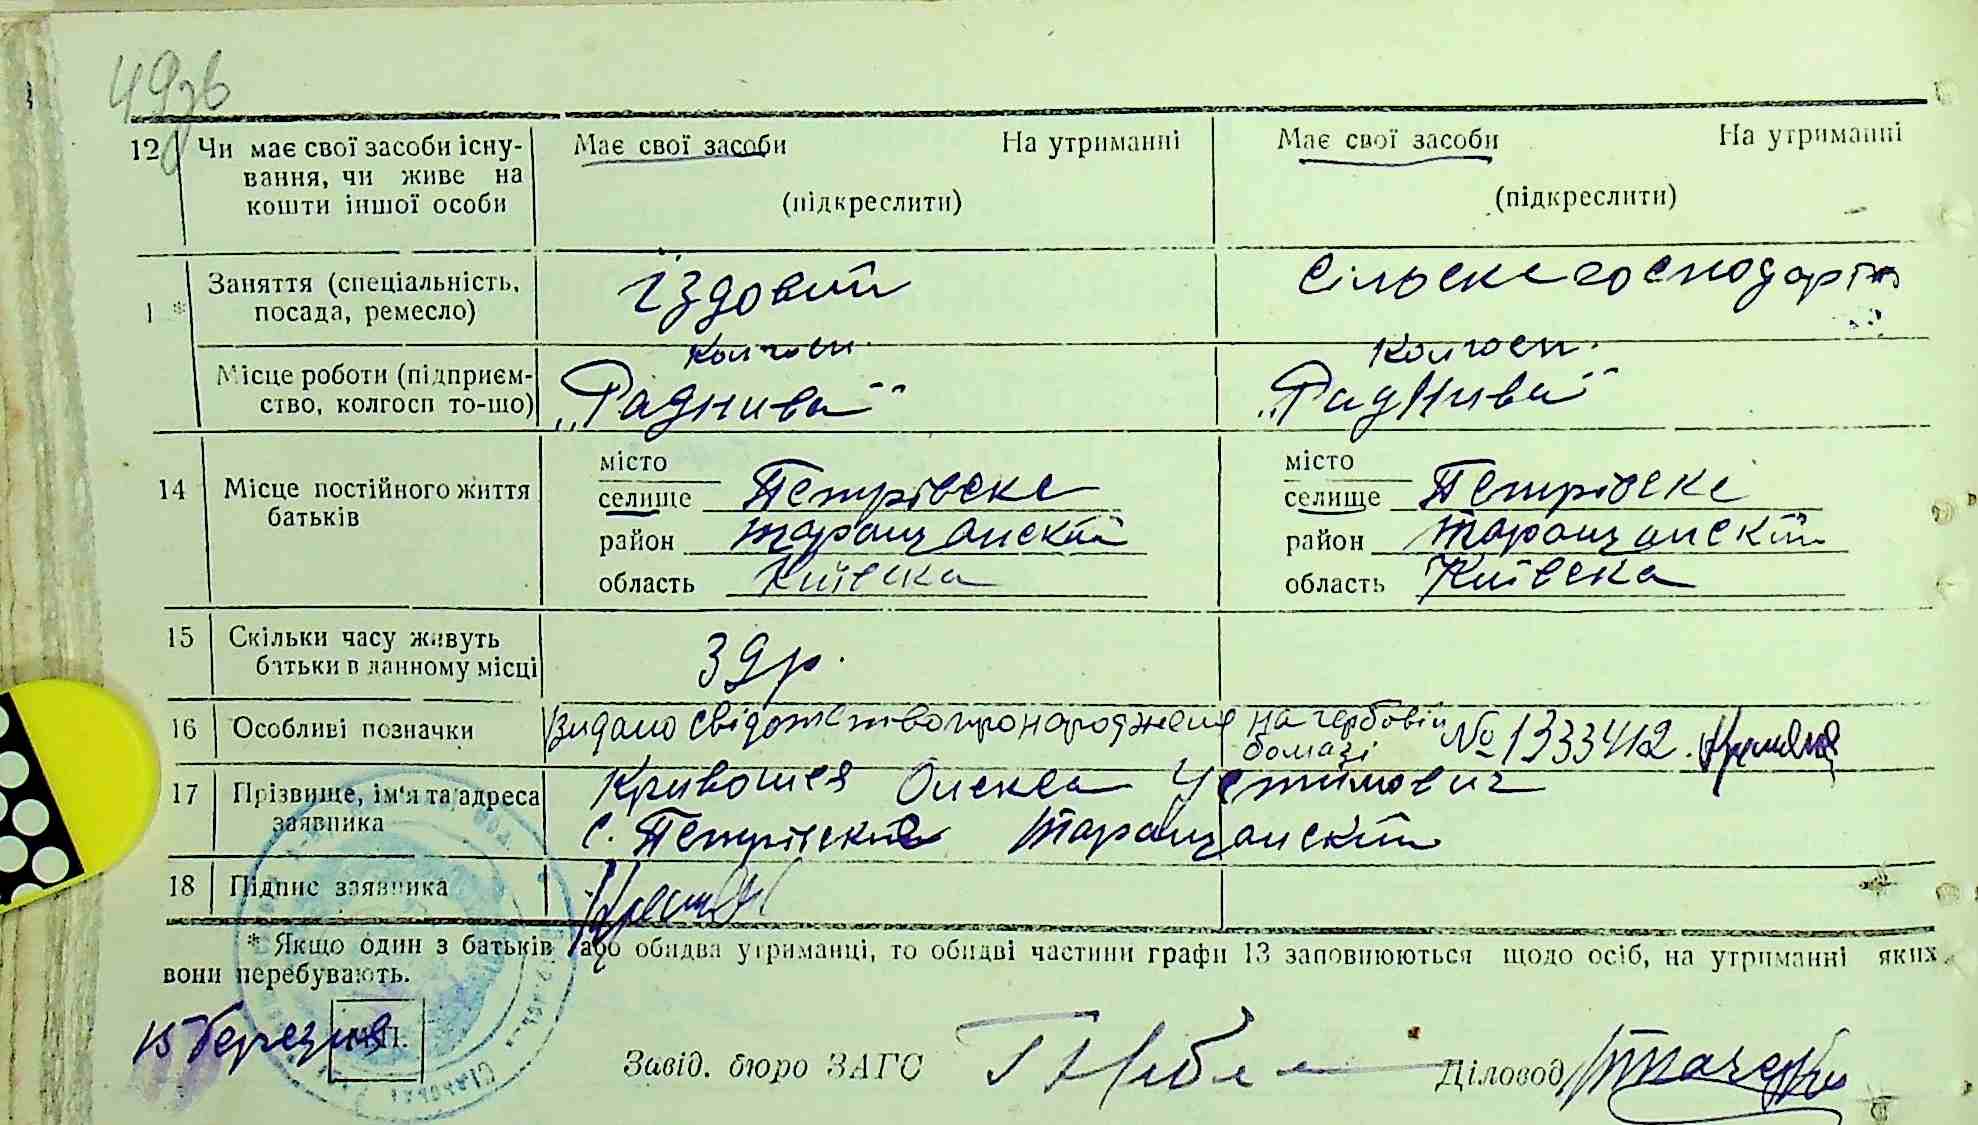 49зв
12 Чи має свої засоби існу- Має свої засоби На утриманні Має свої засоби На утриманні
вання, чи живе на
кошти іншої особи (підкреслити) (підкреслити)
1 * Заняття (спеціальність, їздовий сільске господарт
посада, ремесло)
Місце роботи (підприєм- колгосп. колгосп.
ство, колгосп то-що) „Раднива" „РадНива"
14 Місце постійного життя місто місто
батьків селище Петрівске селище Петрівске
район таращанский район таращанский
область Київска область Київска
15 Скільки часу живуть 39р.
батьки в данному місці
16 Особливі позначки Видано свідожтво про народжене на гербовій бомазі № 1333412.
17 Прізвище, ім'я та адреса Кривошея Олекса Устимович
заявника с. Петрівске Таращанский
18 Підпис заявника
* Якщо один з батьків або обидва утриманці, то обидві частини графи 13 заповнюються щодо осіб, на утриманні яких
вони перебувають.
15 березня М.П.
Завід. бюро ЗАГС Діловод